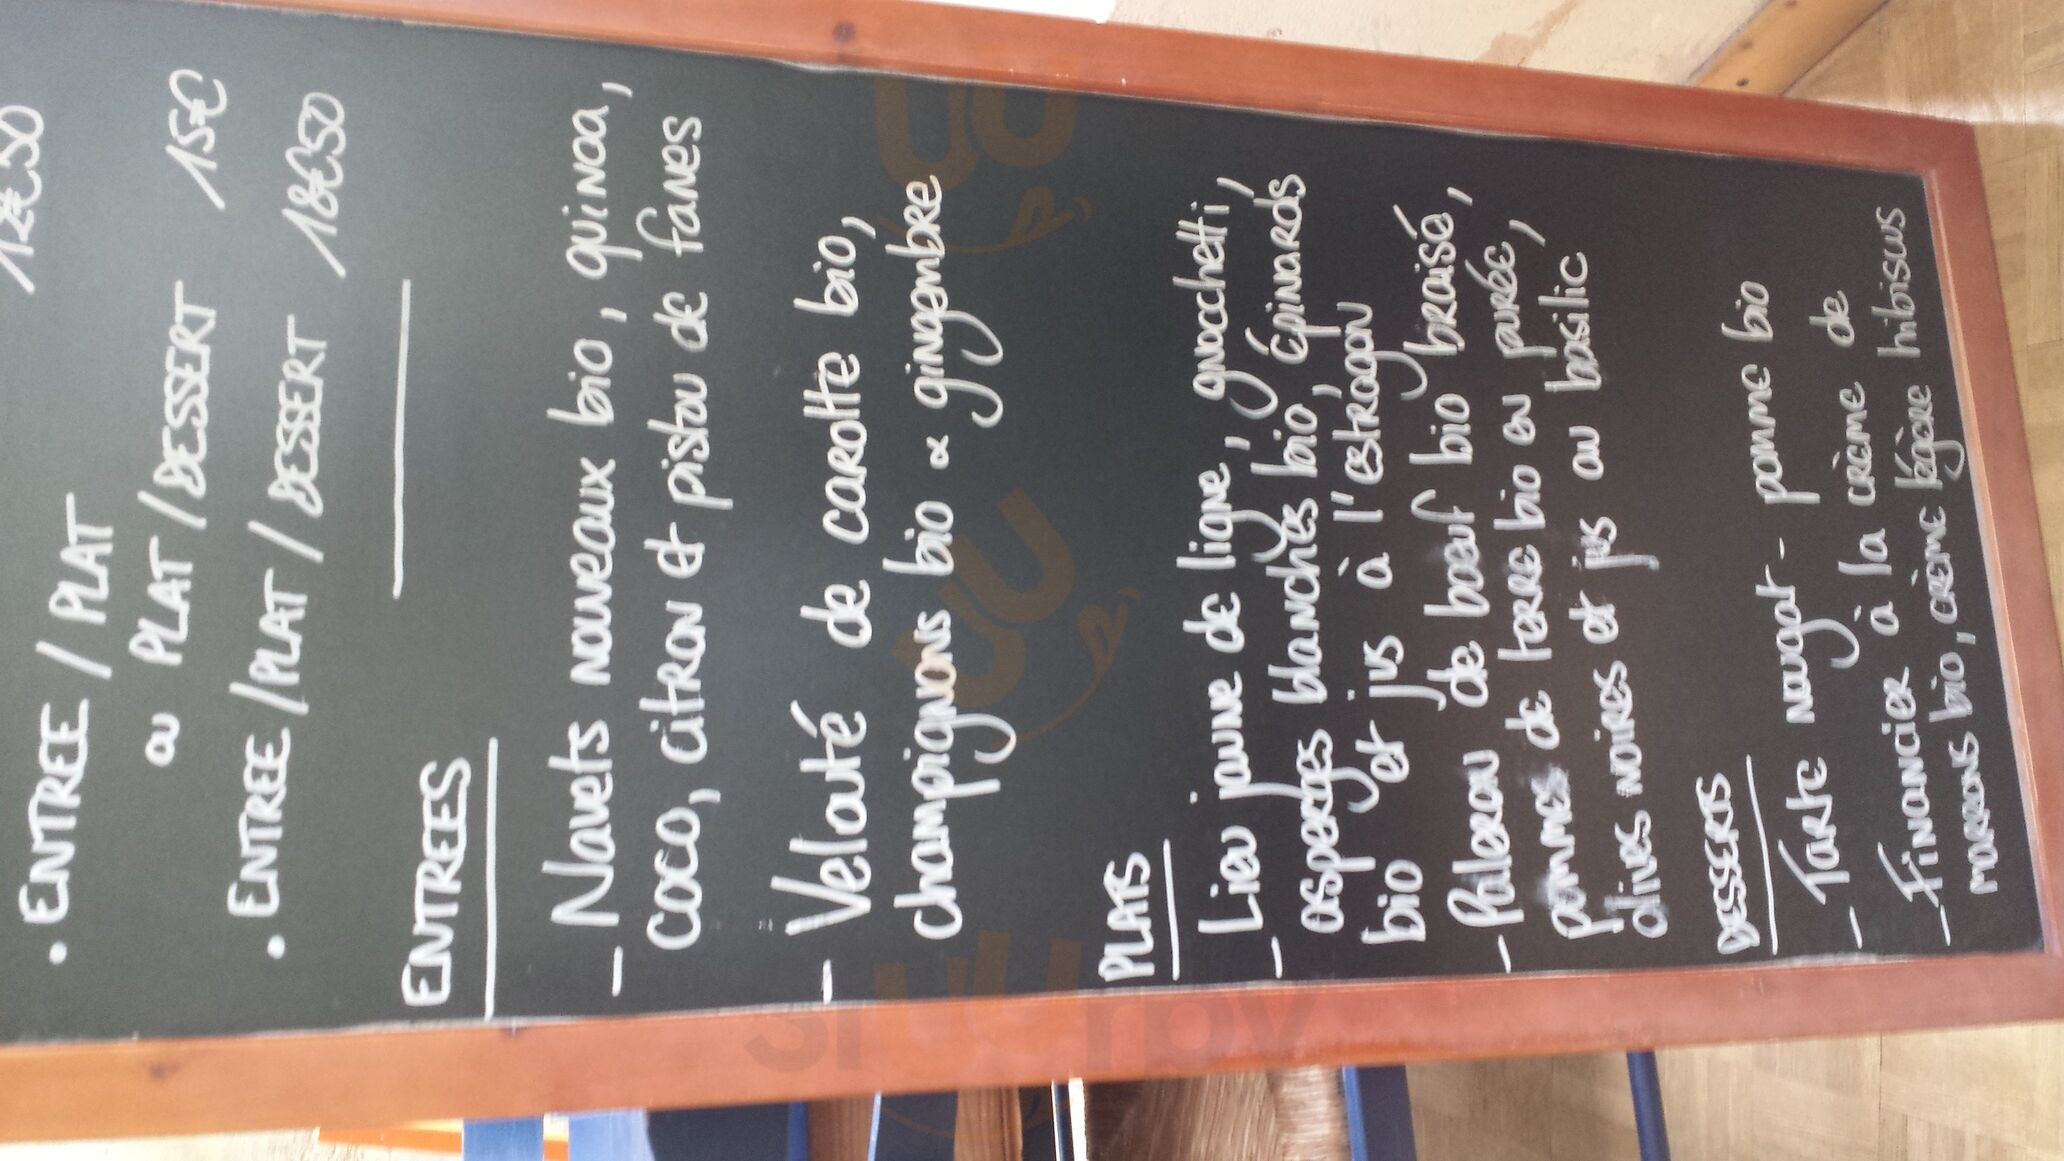 12€50
• ENTREE / PLAT
ou PLAT / DESSERT 15€
• ENTREE / PLAT / DESSERT 18€50
ENTREES
- Navets nouveaux bio, quinoa,
coco, citron et pistou de fanes
- Velouté de carotte bio,
champignons bio & gingembre
PLATS
- Lieu jaune de ligne, gnocchetti,
asperges blanches bio, épinards
bio et jus à l'estragon
- Paleron de boeuf bio braisé,
pommes de terre bio en purée,
olives noires et jus au basilic
DESSERTS
- Tarte nougat - pomme bio
- Financier à la crème de
marrons bio, crème légère hibiscus
sluurpy